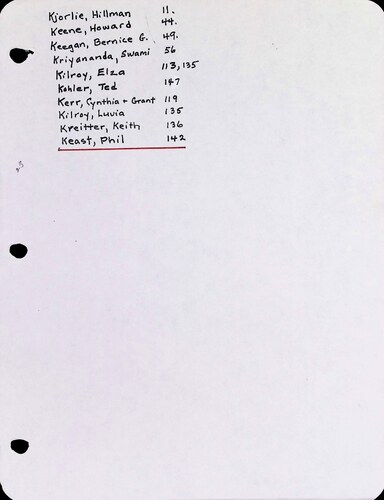 Kjorlie, Hillman 11.
Keene, Howard 44.
Keegan, Bernice G. 49.
Kriyananda, Swami 56
Kilroy, Elza 113, 135
Kohler, Ted 147
Kerr, Cynthia + Grant 119
Kilroy, Luvia 135
Kreitter, Keith 136
Keast, Phil 142